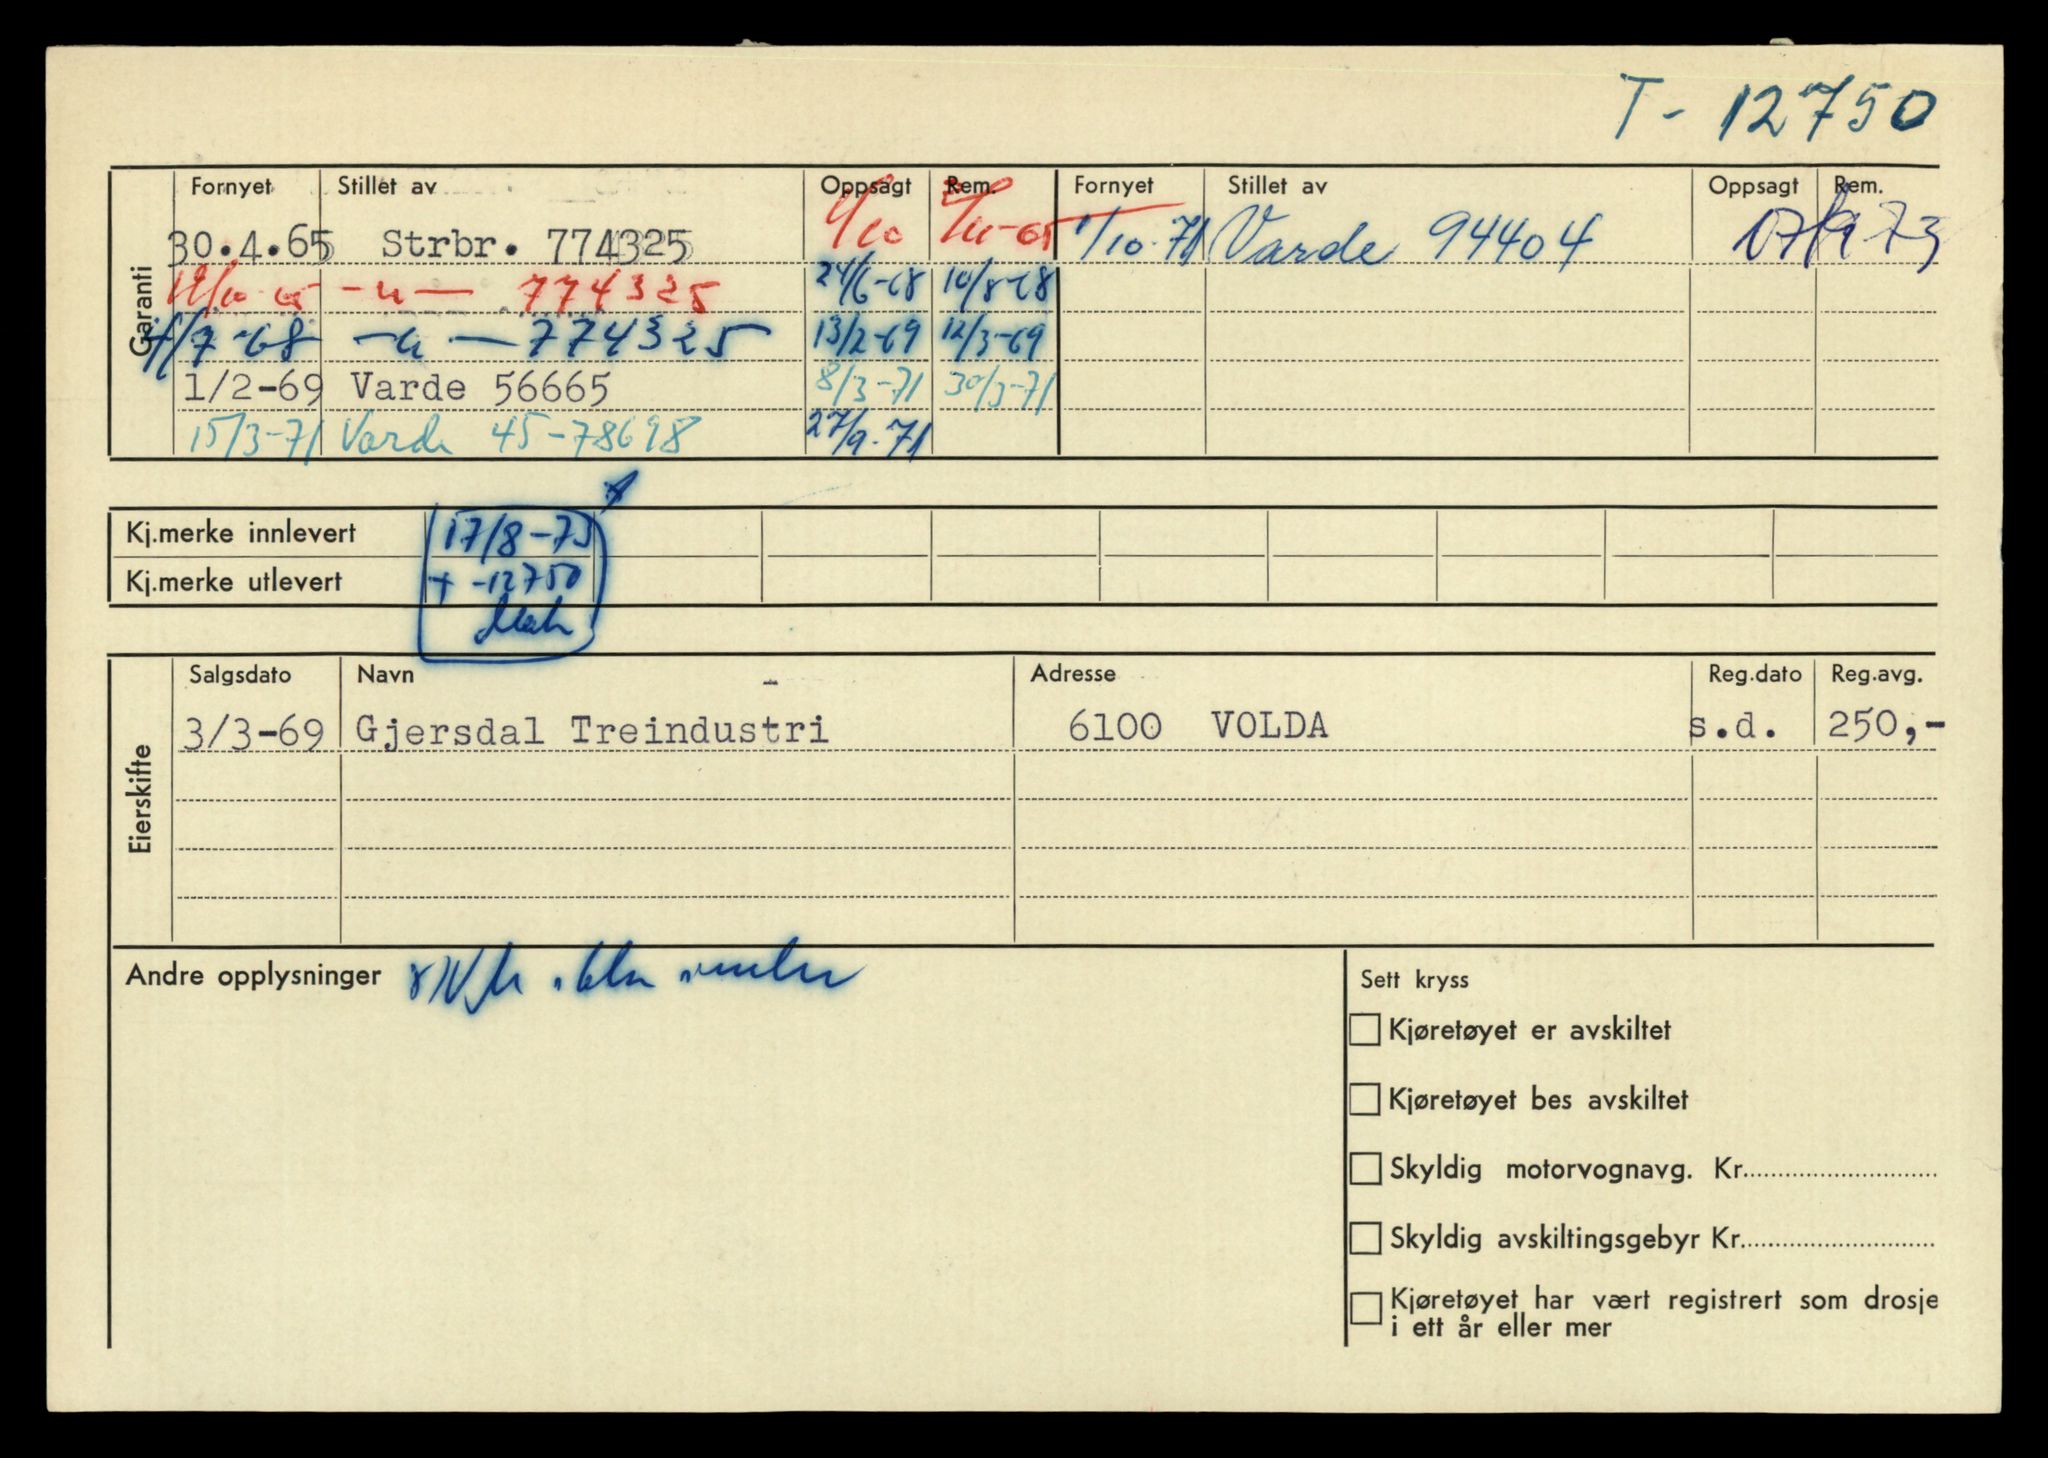 T- 12750
Garanti
Fornyet Stillet av Oppsagt Rem. Fornyet Stillet av Oppsagt Rem.
30.4.65 Strbr. 774325 1/10 -65 1/10-71 Varde 94404 17/9 73
-"- 774325 24/6-68 10/8-68
1/7-68 -"- 774325 13/2-69 12/3-69
1/2-69 Varde 56665 8/3-71 30/3-71
15/3-71 Varde 45-78698 27/9-71
Kj.merke innlevert 17/8-73
Kj.merke utlevert -12750
Eierskifte
Salgsdato Navn Adresse Reg.dato Reg.avg.
3/3-69 Gjersdal Treindustri 6100 VOLDA s.d. 250,-
Andre opplysninger
Sett kryss
Kjøretøyet er avskiltet
Kjøretøyet bes avskiltet
Skyldig motorvognavg. Kr.
Skyldig avskiltingsgebyr Kr.
Kjøretøyet har vært registrert som drosje
i ett år eller mer